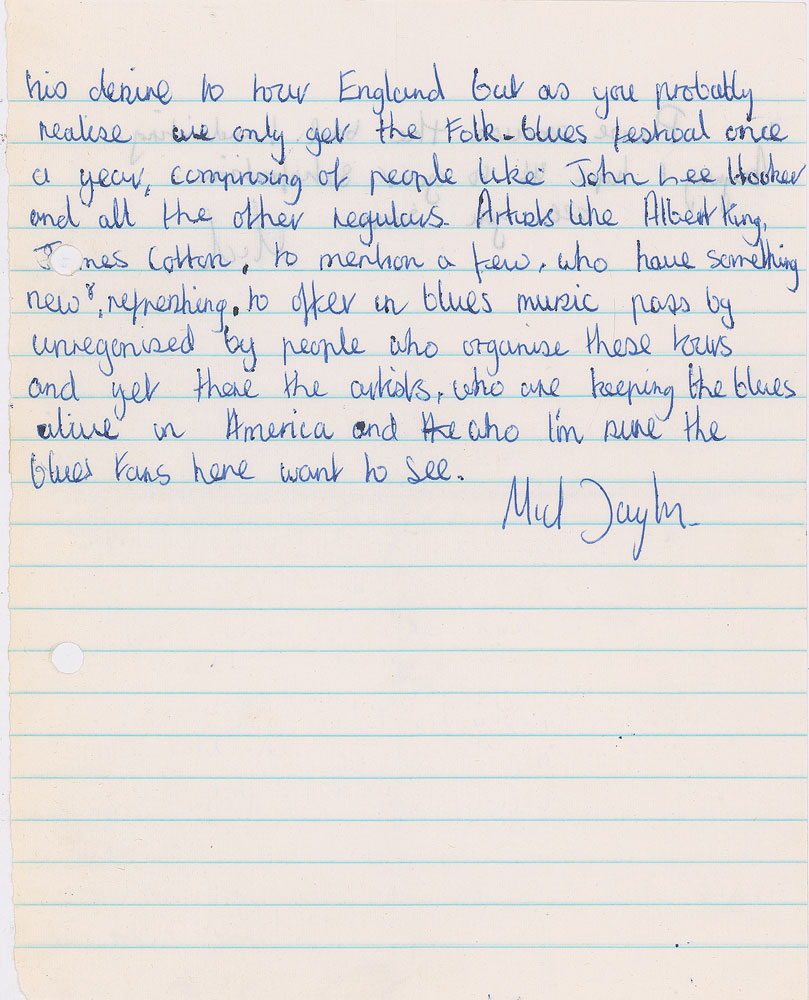 his desire to tour England but as you probably
realise we only get the Folk-blues festival once
a year, comprising of people like John Lee Hooker
and all the other regulars. Artists like Albert King,
James Cotton, to mention a few, who have something
new &, refreshing, to offer in blues music pass by
unregonised by people who organise these tours
and yet there the artists, who are keeping the blues
alive in America and who I'm sure the
blues fans here want to see.
Mick Taylor